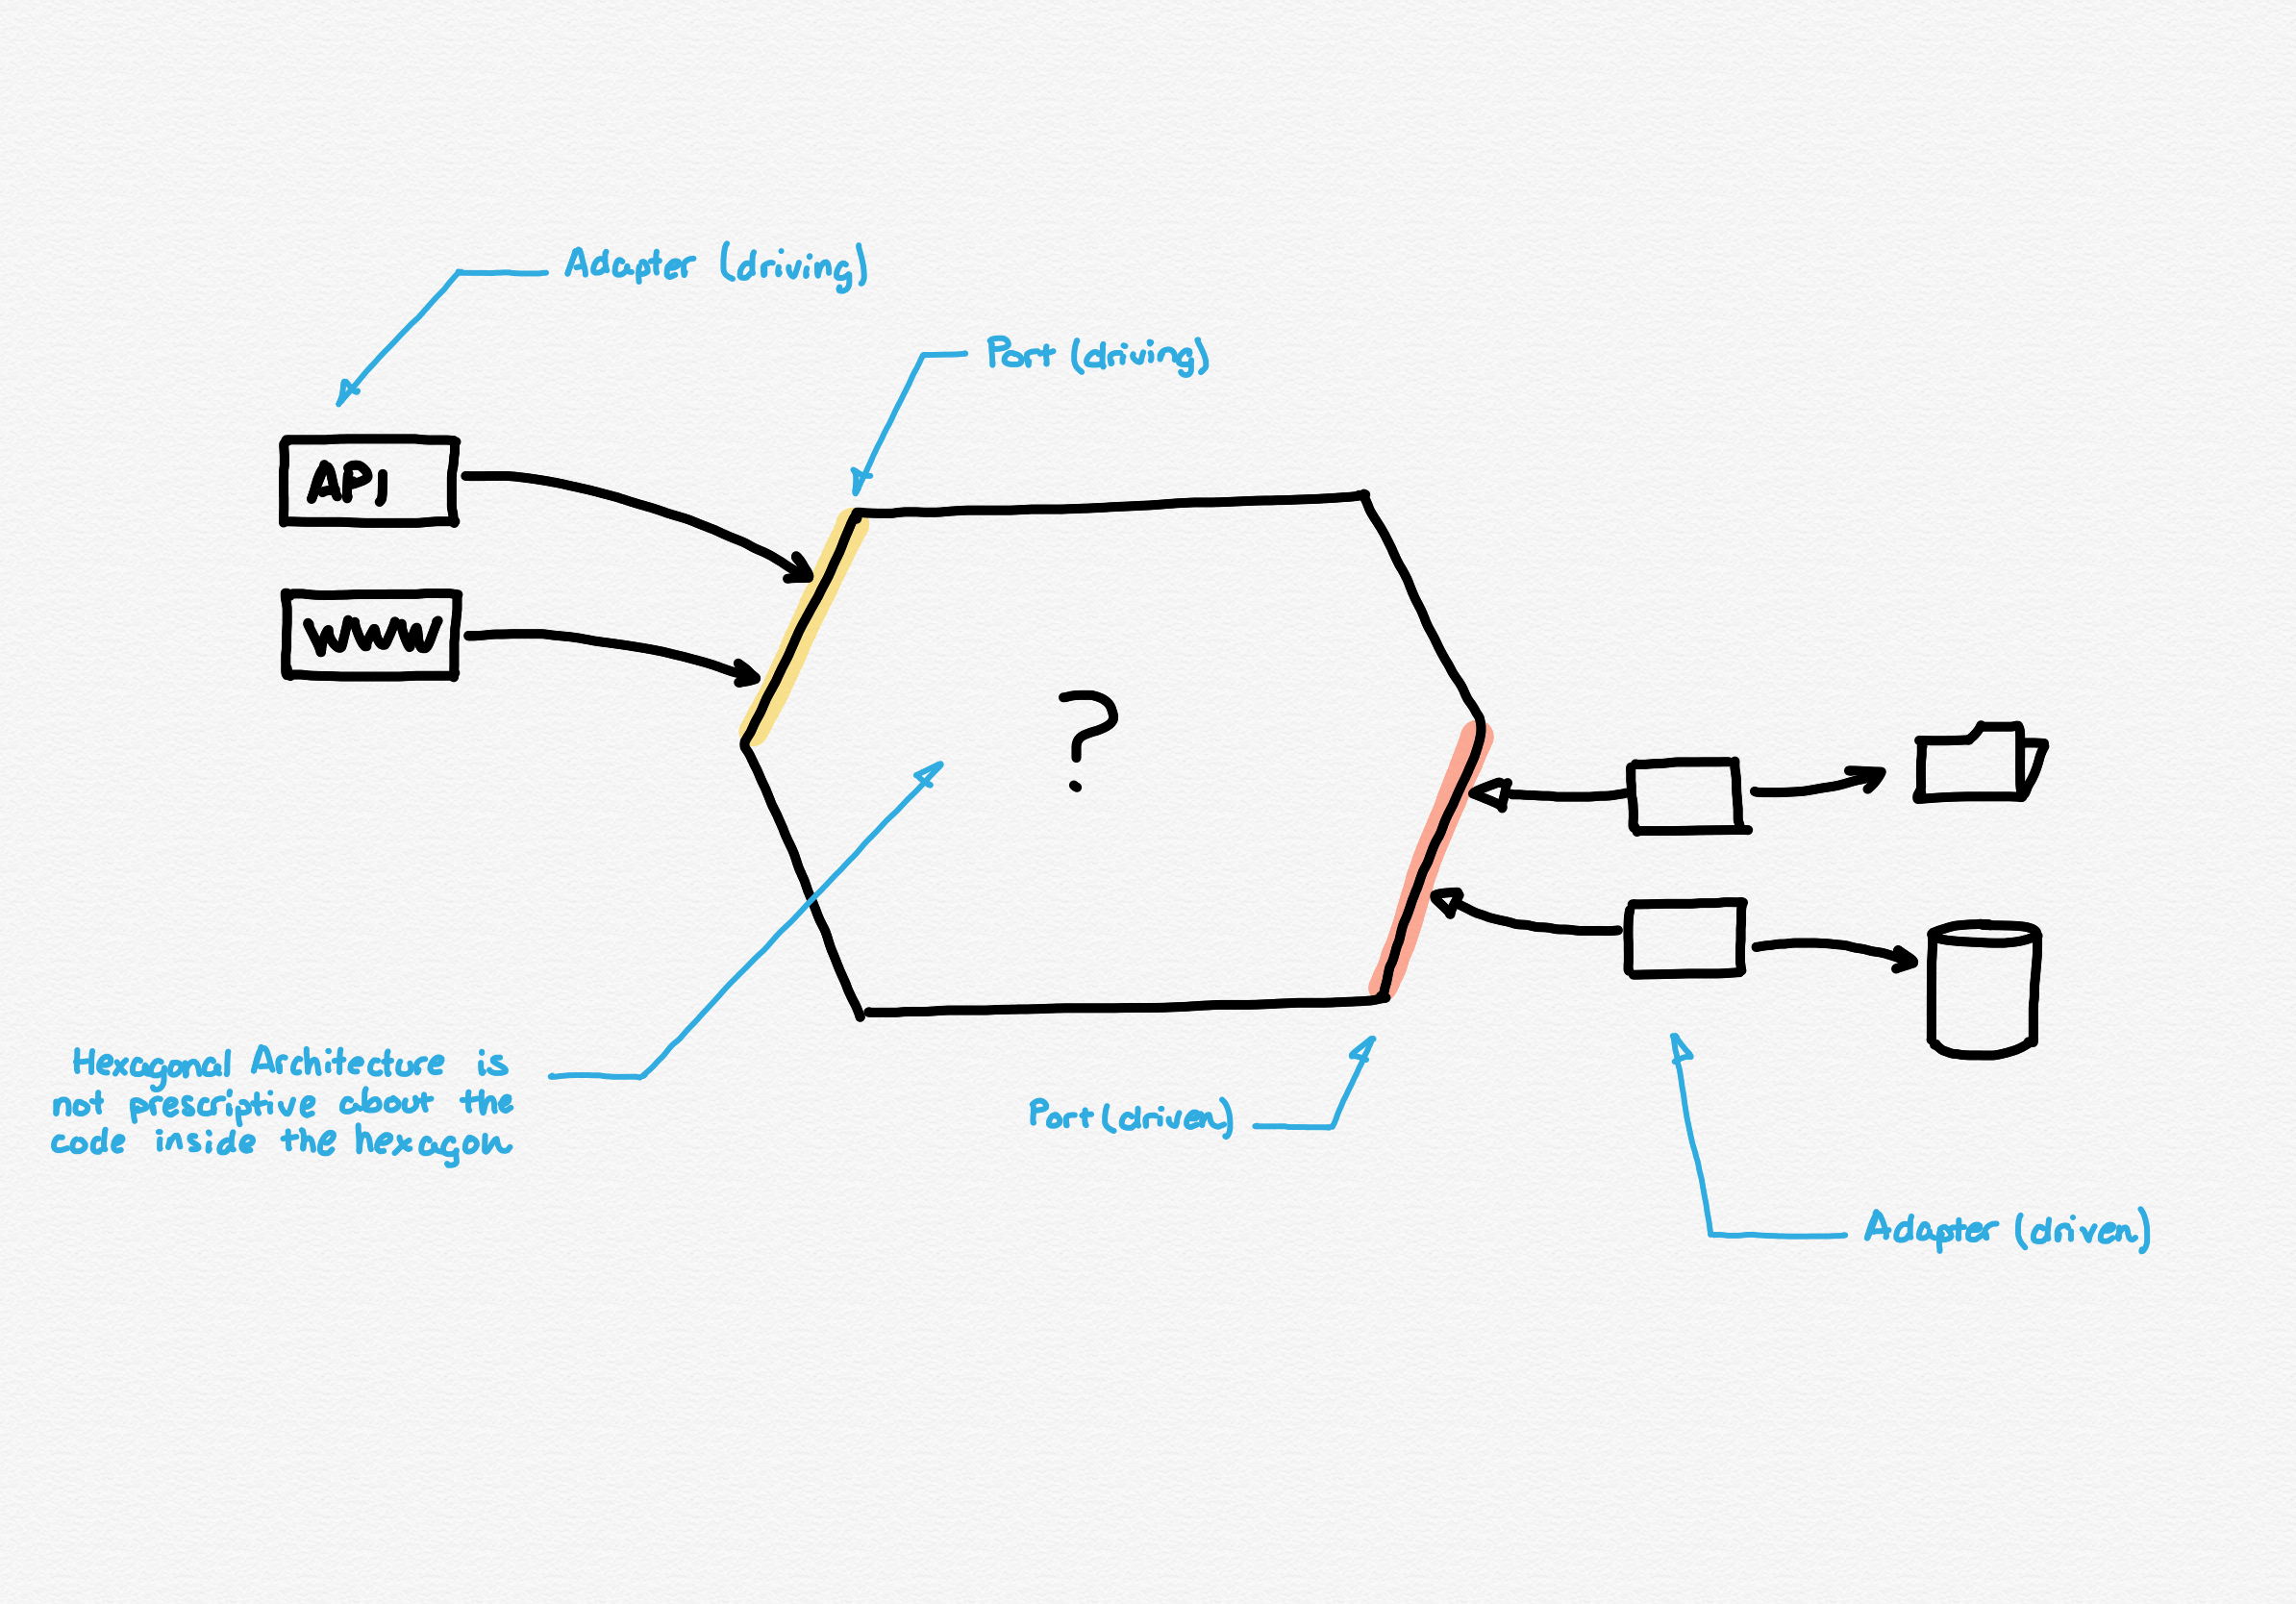 Adapter (driving)
Port (driving)
API
WWW
?
Hexagonal Architecture is
not prescriptive about the
code inside the hexagon
Port (driven)
Adapter (driven)